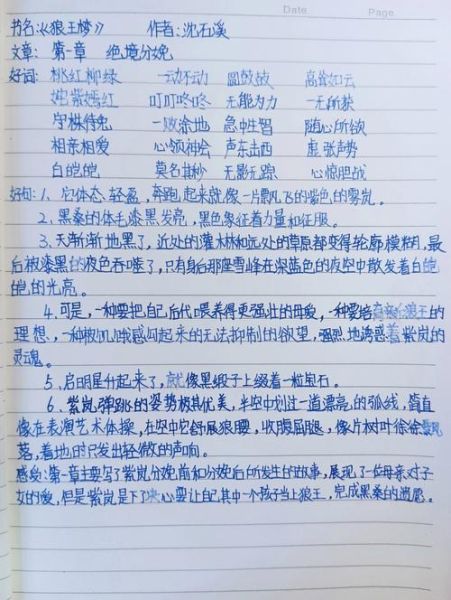 Date
Page
书名:《狼王梦》 作者:沈石溪
文章: 第一章 绝境分娩
好词: 桃红柳绿 一动不动 圆鼓鼓 高耸如云
姹紫嫣红 叮叮咚咚 无能为力 一无所获
守株待兔 一败涂地 急中生智 随心所欲
相亲相爱 心领神会 声东击西 虚张声势
白皑皑 莫名其妙 无影无踪 心惊胆战
好句: 1、它体态轻盈,奔跑起来就像一片飘飞的紫色的雾岚。
2、黑桑的体毛漆黑发亮,黑色象征着力量和征服。
3、天渐渐地黑了,近处的灌木林和远处的草原都变得轮廓模糊,最
后被漆黑的夜色吞噬了,只有身后那座雪峰在深蓝色的夜空中散发着白皑
皑的光亮。
4、可是,一种要把自己后代喂养得更强壮的母爱,一种要培狼王的
理想,一种被饥饿感勾起来的无法抑制的欲望,强烈地诱惑着紫岚的
灵魂。
5、启明星升起来了,就像黑缎子上缀着一粒宝石。
6、紫岚弹跳的姿势极其优美,半空中划过一道漂亮的弧线,简直
像在表演艺术体操,在空中它舒展狼腰,收腹屈腿,像片树叶徐徐飘
落,着地时只发出轻微的声响。
感受:第一章主要写了紫岚分娩前和分娩后所发生的故事,展现了一位母亲对子
女的爱,但是紫岚是下了决心要让自己其中一个孩子当上狼王,完成黑桑的遗愿。